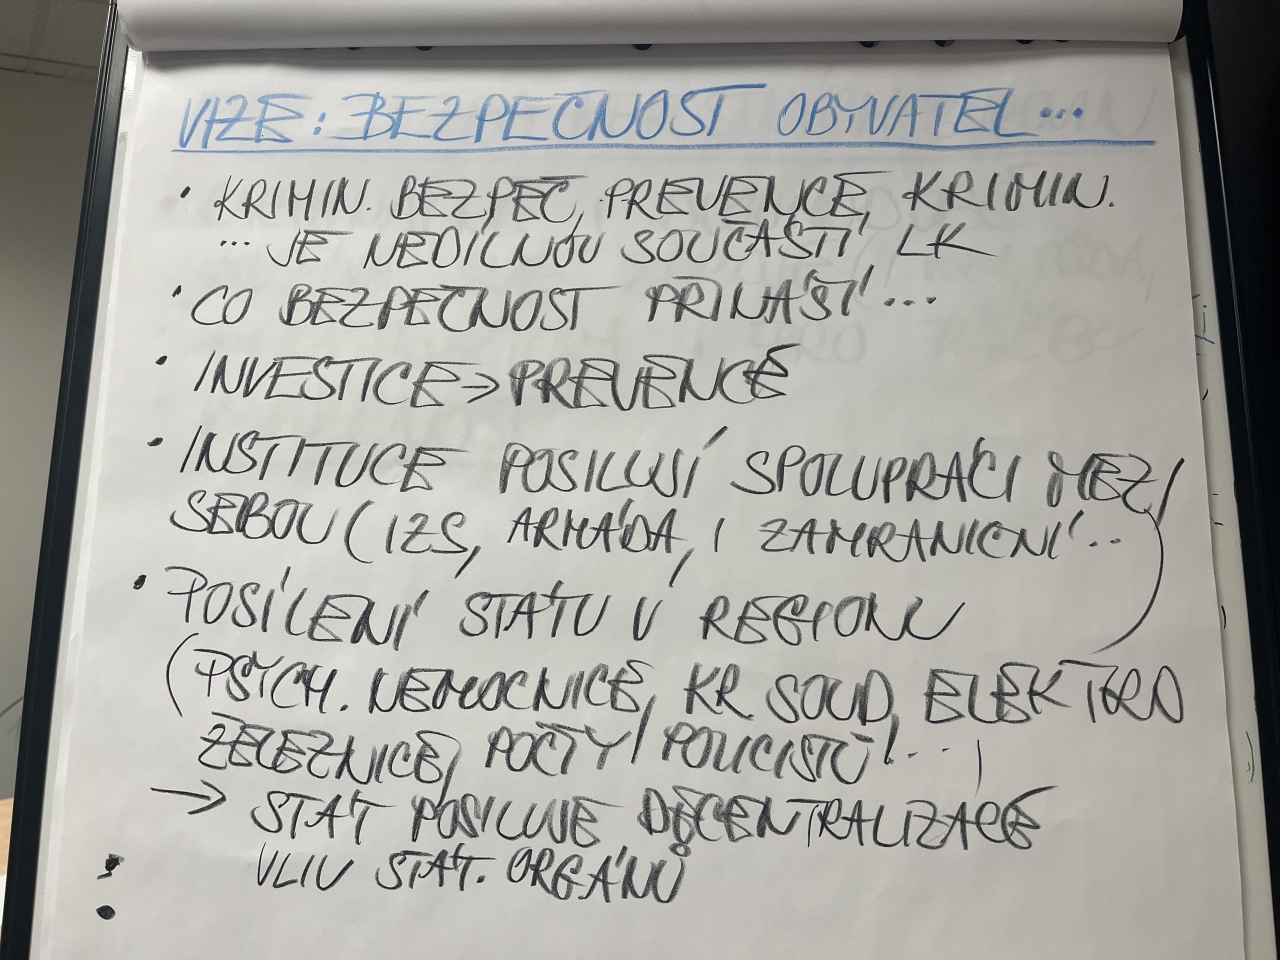 VIZE: BEZPEČNOST OBYVATEL...
• KRIMIN. BEZPEČ, PREVENCE, KRIMIN.
... JE NEDÍLNOU SOUČÁSTÍ LK
• CO BEZPEČNOST PŘINÁŠÍ...
• INVESTICE → PREVENCE
• INSTITUCE POSILUJÍ SPOLUPRÁCI MEZI
SEBOU (IZS, ARMÁDA, I ZAHRANIČNÍ...
• POSÍLENÍ STÁTU V REGIONU
(PSYCH. NEMOCNICE, KR. SOUD, ELEKTRO
ŽELEZNICE, POČTY POLICISTŮ!...)
→ STÁT POSILUJE DECENTRALIZACE
VLIV STÁT. ORGÁNŮ
•
•